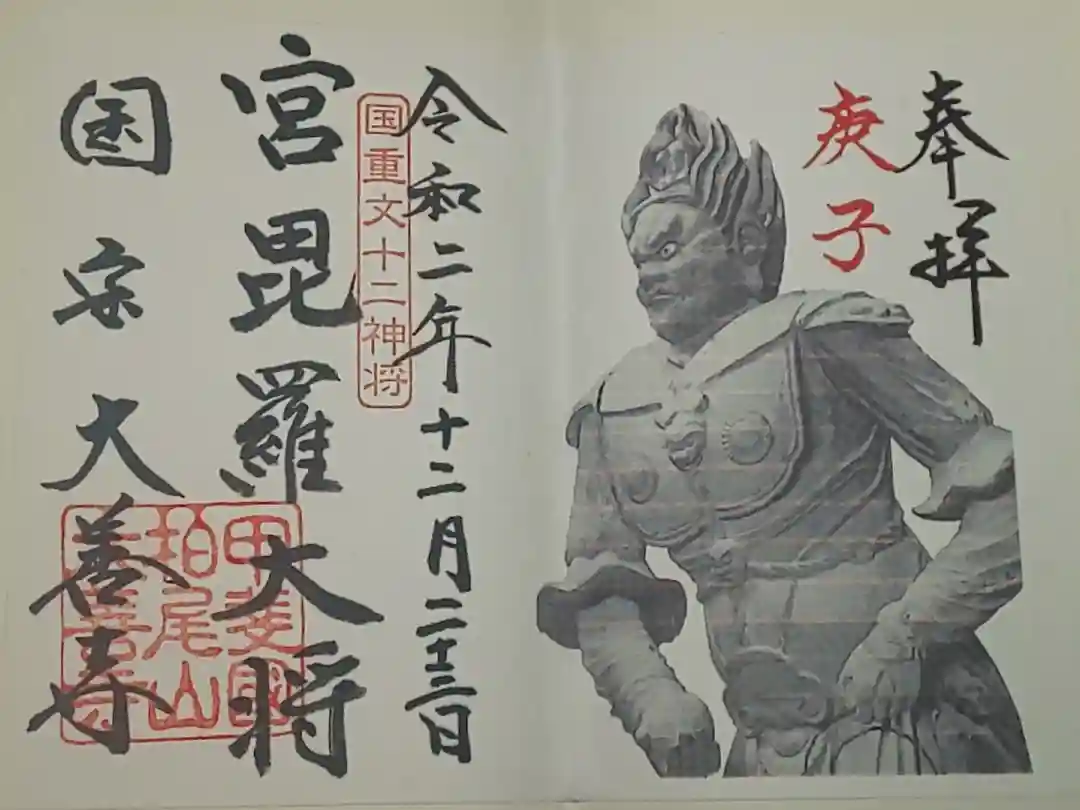 奉拝
庚子
令和二年十二月二十三日
国重文十二神将
宮毘羅大将
国宝大善寺
甲斐國
柏尾山
大善寺